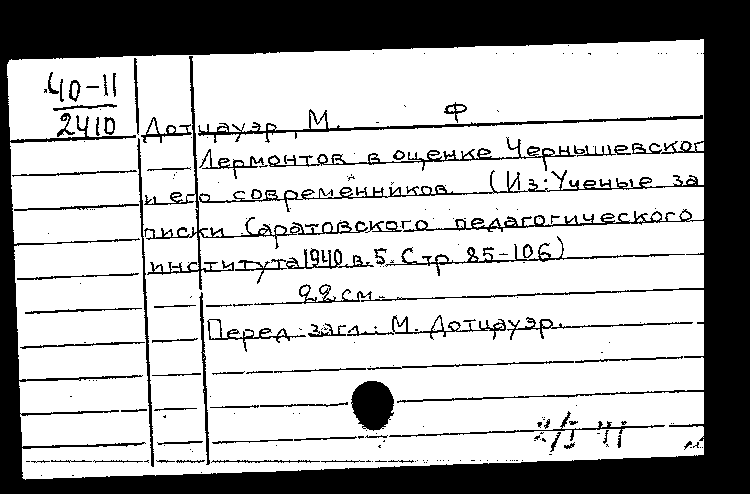 40-11
2410
Дотцауэр, М. Ф
Лермонтов в оценке Чернышевског
и его современников. (Из: Ученые за
писки Саратовского педагогического
института 1940. в. 5. Стр 85-106)
22 см.
Перед загл.: М. Дотцауэр.
2/I 41